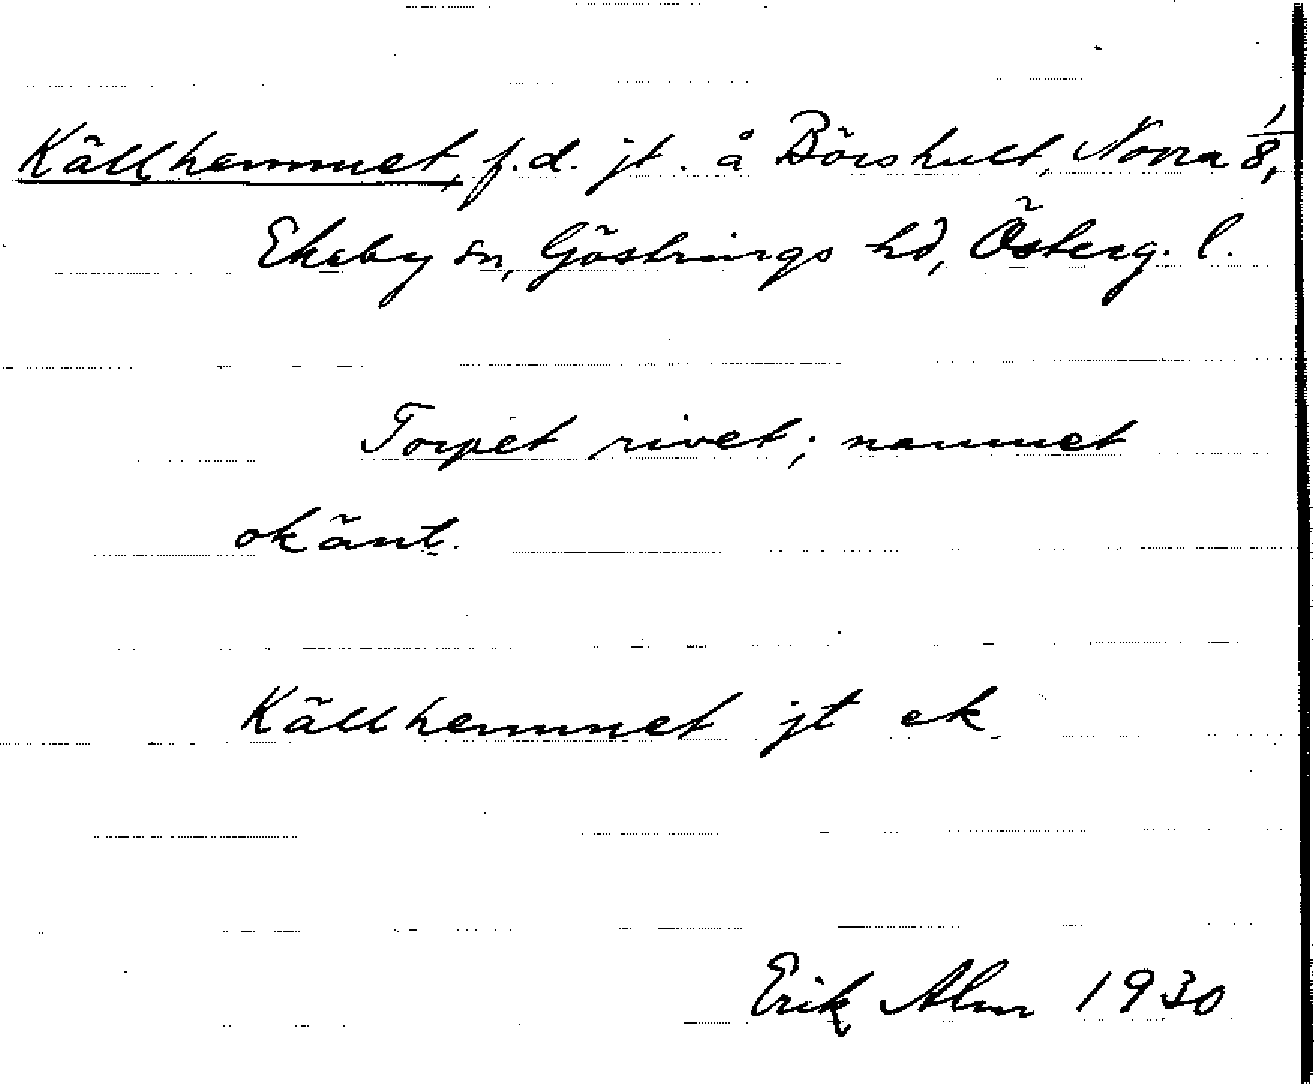 Källhemmet, f.d. jt. å Börshult, Norra 1/8,
Ekeby sn, Göstrings hd, Österg. l.
Torpet rivet; namnet
okänt.
Källhemmet jt ek
Erik Alm 1930